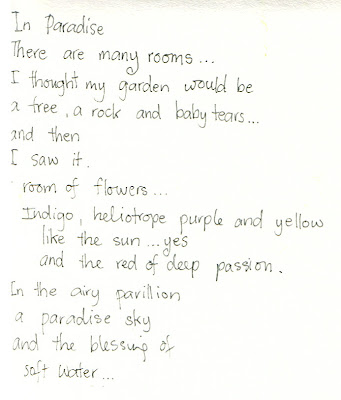 In Paradise
There are many rooms...
I thought my garden would be
a tree, a rock and baby tears...
and then
I saw it.
room of flowers...
Indigo, heliotrope purple and yellow
like the sun...yes
and the red of deep passion.
In the airy pavillion
a paradise sky
and the blessing of
soft water...